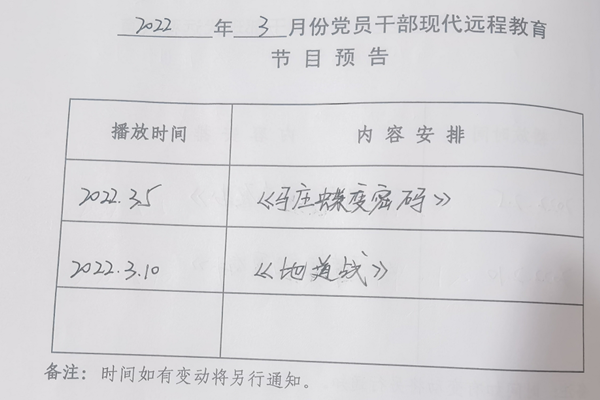 2022 年 3 月份党员干部现代远程教育
节目预告
播放时间 内容安排
2022.3.5 《马庄蝶变密码》
2022.3.10 《地道战》
备注：时间如有变动将另行通知。